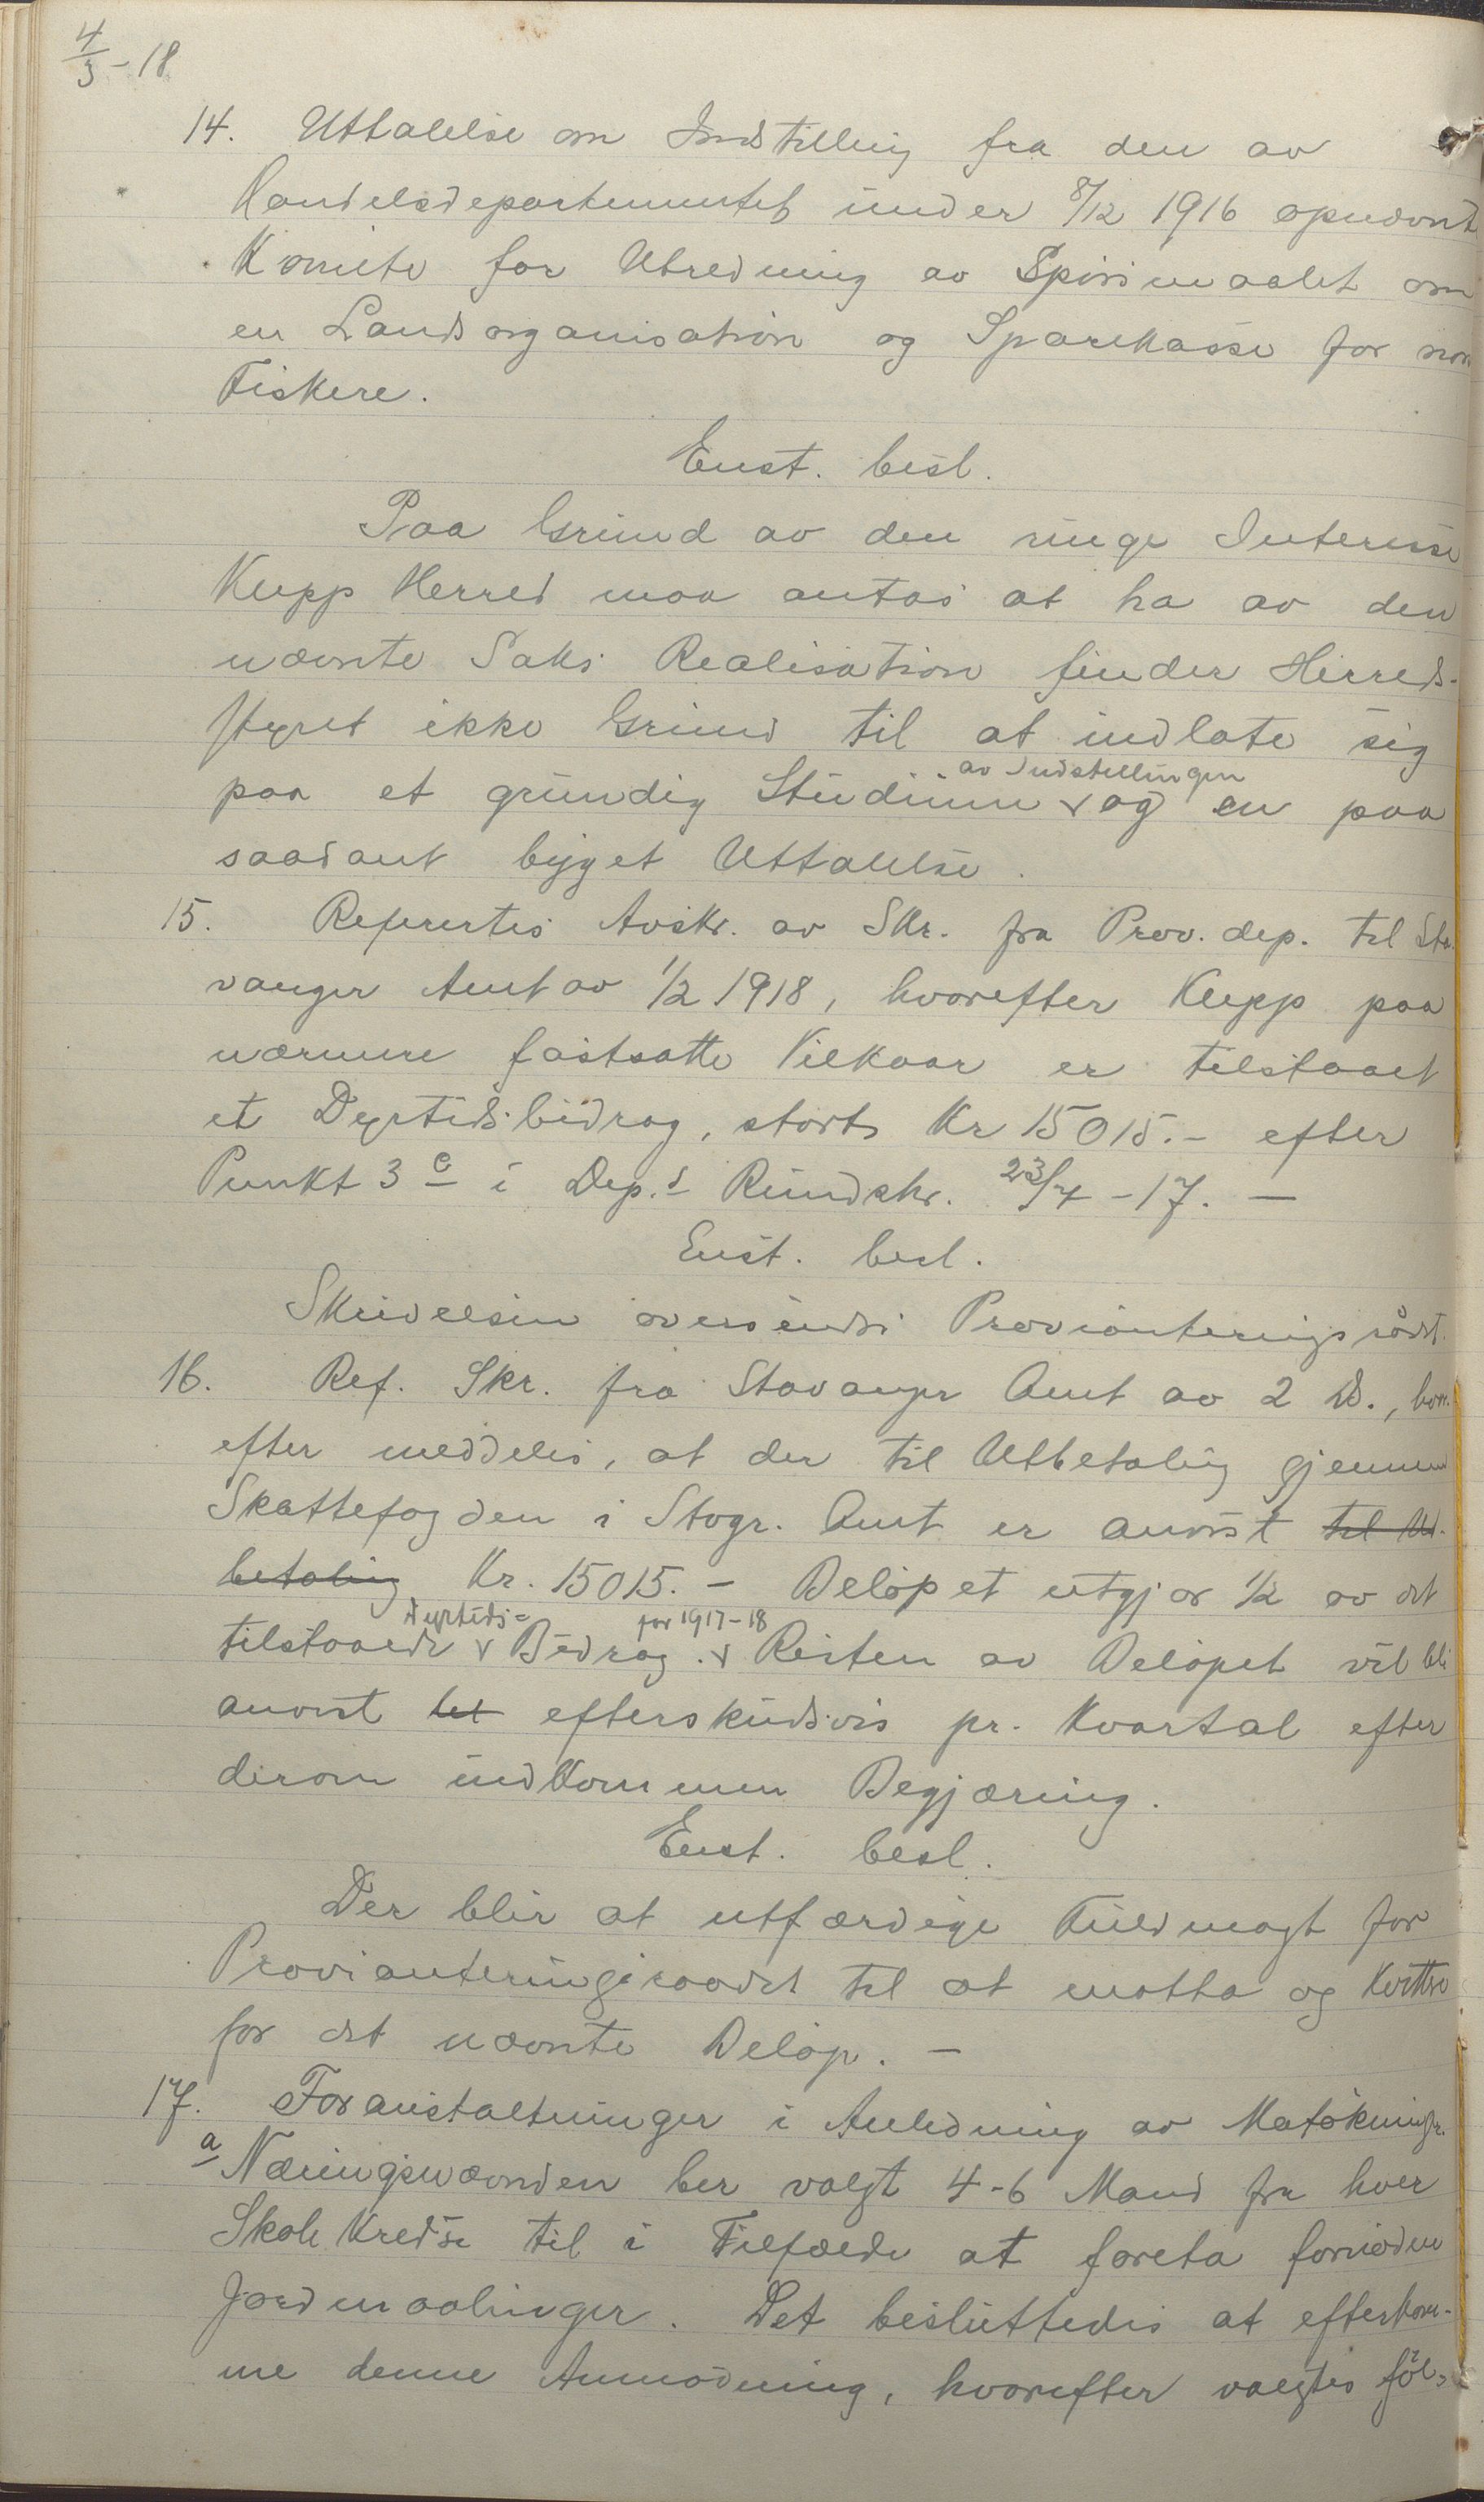 4/3-18
14. Uttalelse om Indstilling fra den av
Handelsdepartementet under 8/12 1916 opnævnt
Komite for Utredning av Spörsmaalet om
en Landsorganisation og Sparekasse for nor
Fiskere.
Enst. besl.
Paa Grund av den ringe Interesse
Klepp Herred maa antas at ha av den
nævnte Saks Realisation finder Herreds-
styret ikke Grund til at indlate sig
av Indstillingen
paa et grundig Studium v og en paa
saadant bygget Uttalelse.
15. Refertes Avskr. av Skr. fra Prov. dep. til Sta-
vanger Amt av 1/2 1918, hvorefter Klepp paa
nærmere fastsatte Vilkaar er tilstaaet
et Dyrtidsbidrag, stort Kr 15015.- efter
Punkt 3 c i Dep.s Rundskr. 23/7 -17. —
Enst. besl.
Skrivelsen oversendes Provianteringsrådet.
16. Ref. Skr. fra Stavanger Amt av 2 ds., hvor-
efter meddeles, at der til Utbetaling gjennem
Skattefogden i Stvgr. Amt er anvist til Ut-
betaling Kr. 15015.- Beløpet utgjør 1/2 av det
Dyrtids= for 1917-18
tilstaaede v Bidrag. v Resten av Beløpet vil bli
anvist bet efterskudsvis pr. Kvartal efter
derom indkommen Begjæring.
Enst. besl.
Der blir at utfærdige Fuldmagt for
Provianteringsraadet til at motta og kvittere
for det nævnte Beløp. —
17. Foranstaltninger i Anledning av Matøkningen.
a Næringsnævnden ber valgt 4-6 Mand fra hver
Skolekreds til i Tilfælde at foreta fornødne
Jordmaalinger. Det besluttedes at efterkom-
me denne Anmodning, hvorefter valgtes föl-